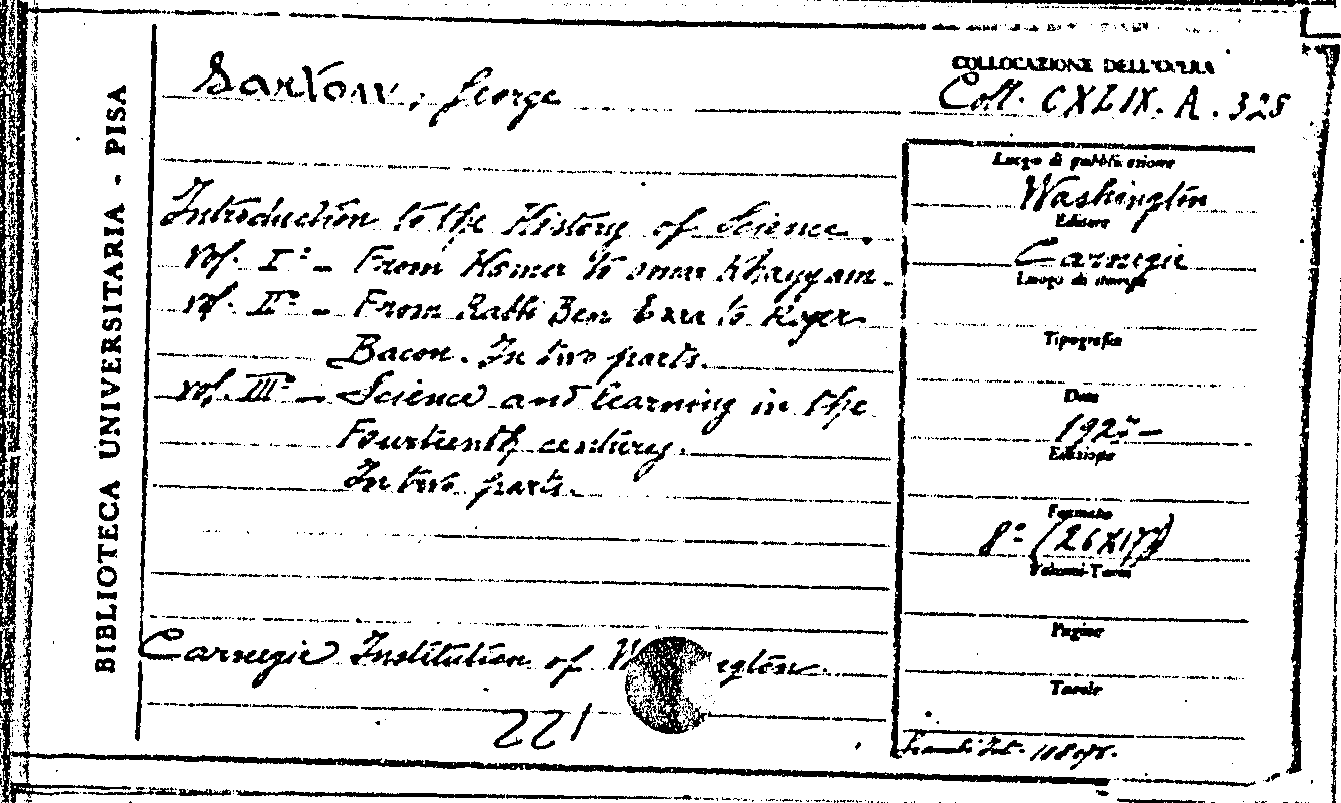 BIBLIOTECA UNIVERSITARIA - PISA
Sarton, George
COLLOCAZIONE DELL'OPERA
Coll. CXLIX. A. 325
Introduction to the History of Science.
vol. I° - From Homer to Omar Khayyam.
vol. II° - From Rabbi Ben Ezra to Roger
Bacon. In two parts.
vol. III° - Science and learning in the
Fourteenth century.
In two parts.
Carnegie Institution of
221
Luogo di pubblicazione
Washington
Editore
Carnegie
Luogo di stampa
Tipografia
Data
Edizione
Formato
8° (26X17)
Volumi-Tomi
Pagine
Tavole